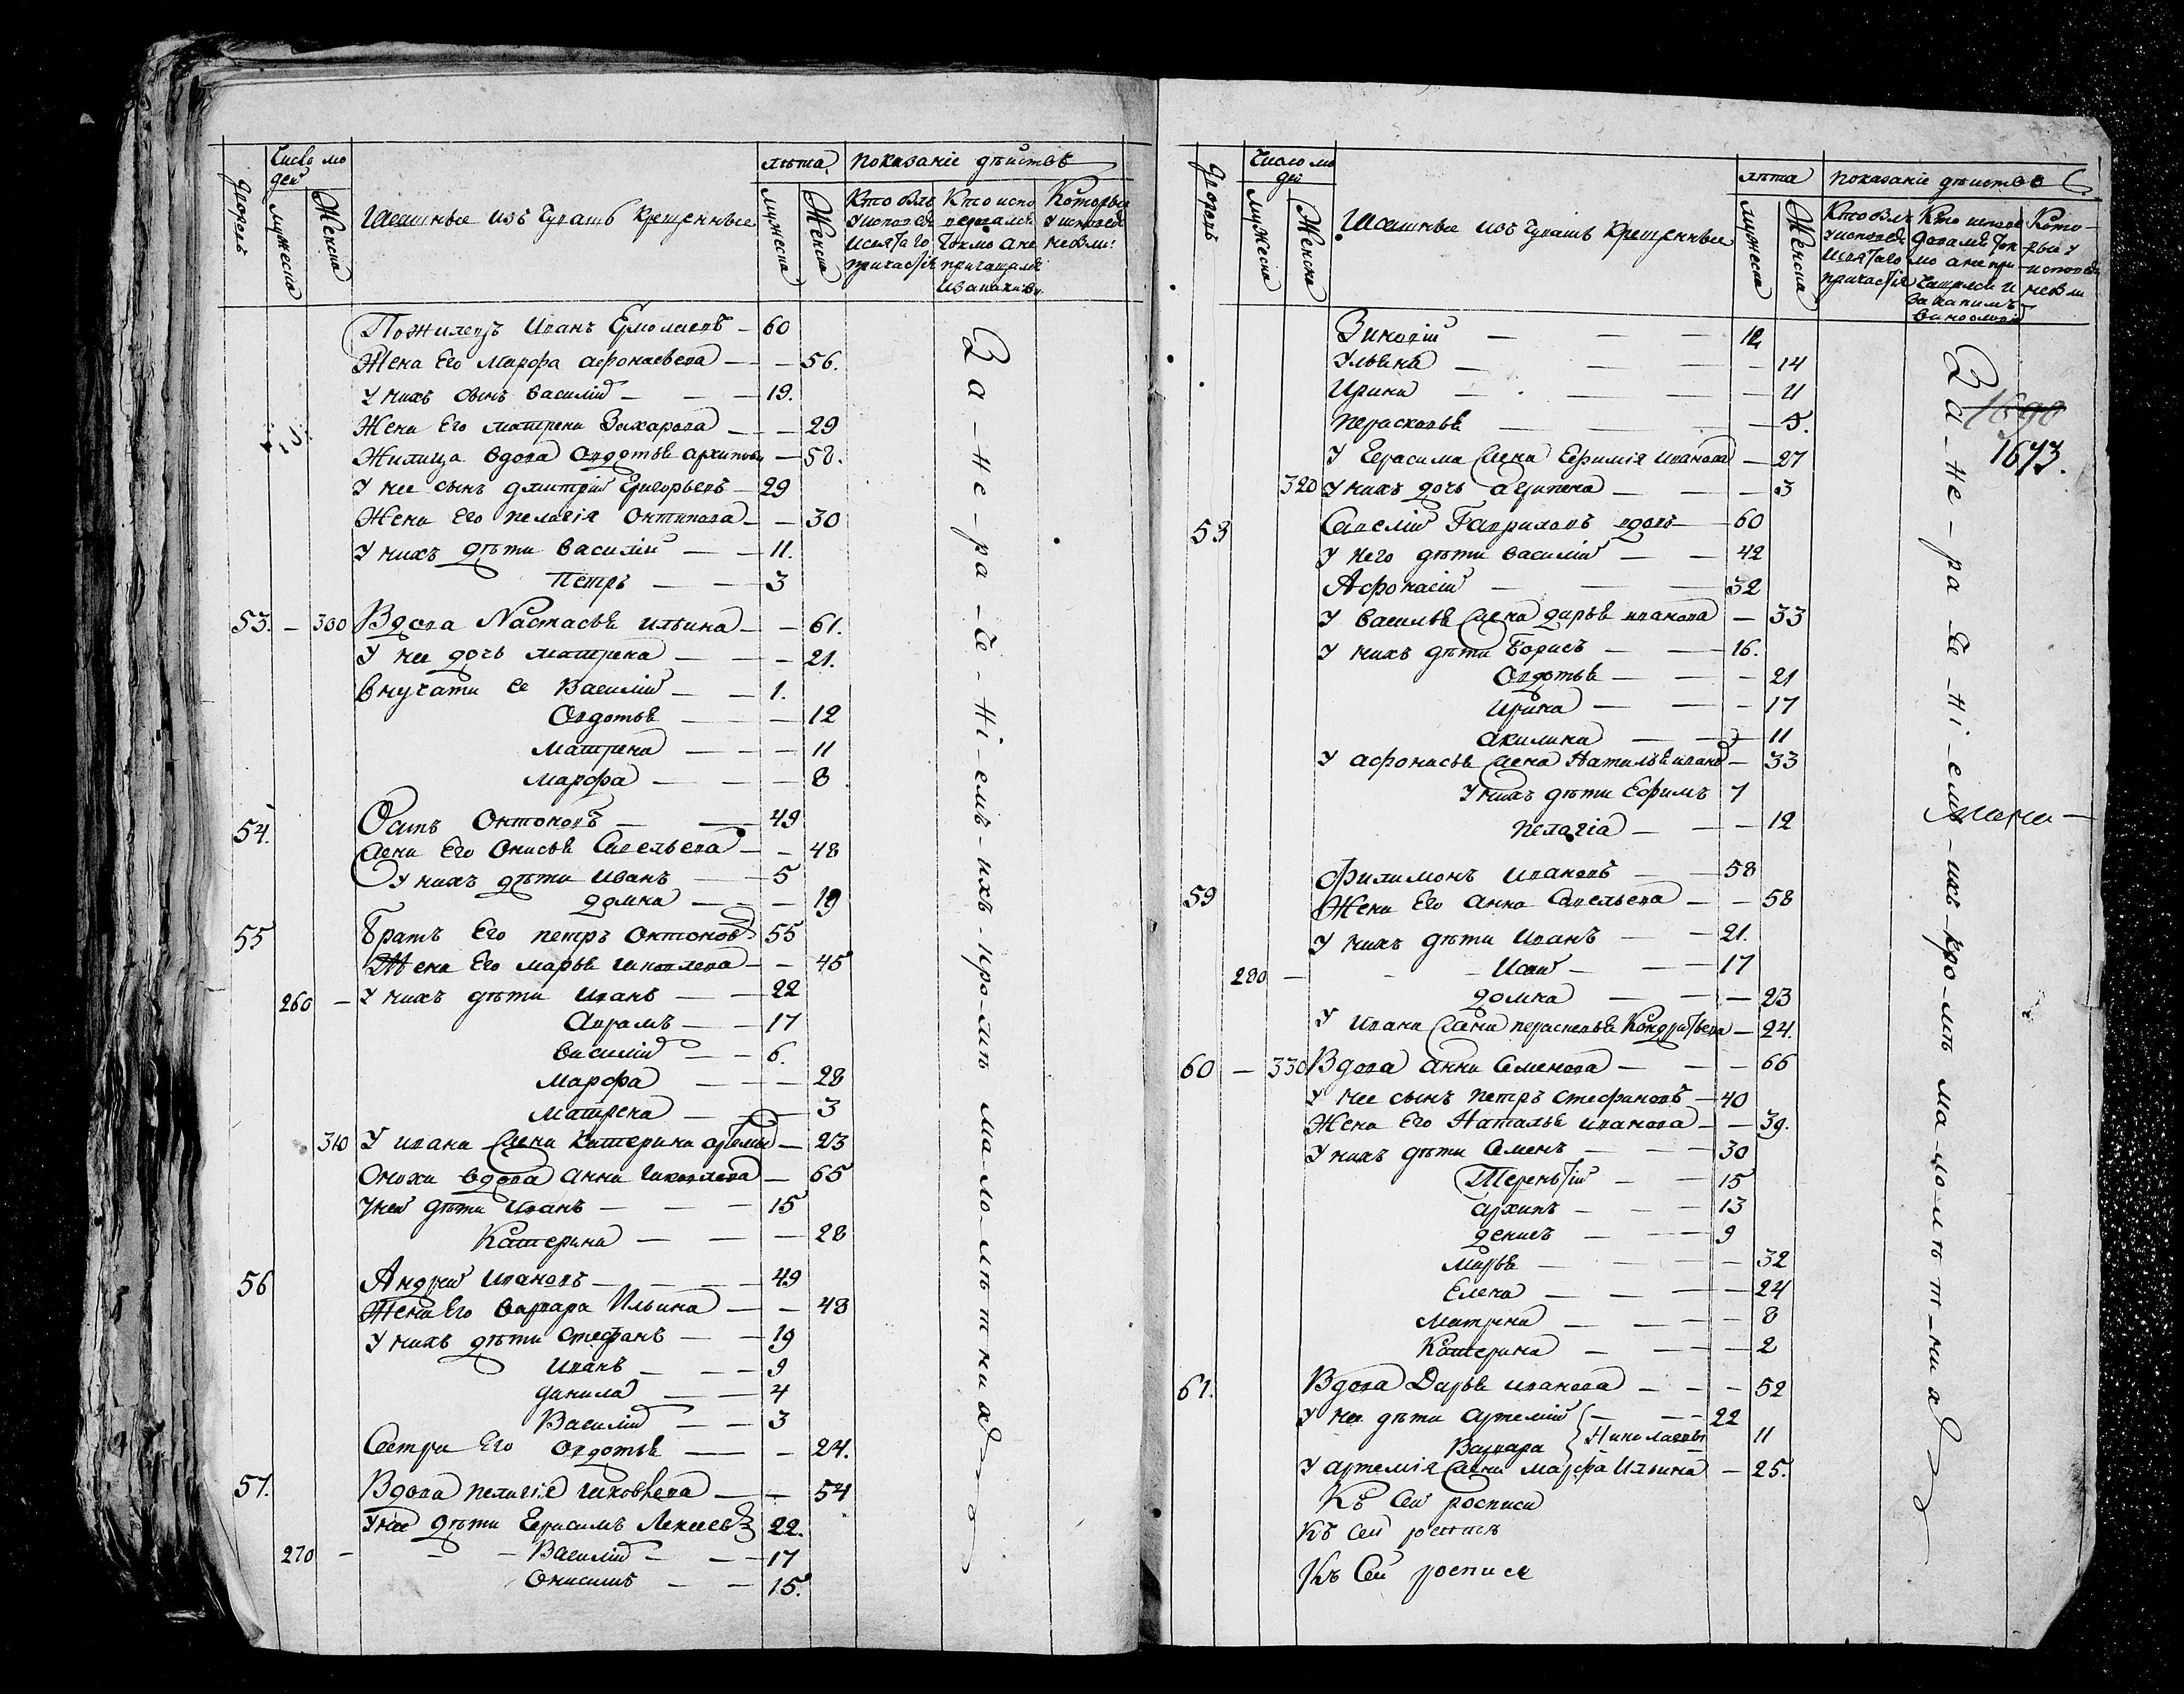 дворовъ
Число лю
дей
мужеска
Женска
Ясашные изъ Чувашъ крещенные
лѣта
мужеска
Женска
показаніе дѣйствъ
Кто былъ
у исповѣди
и святаго
причастія
Кто испо
ведался
токмо а не
причащался
Которые
у исповеди
не были
Пожилецъ Иванъ Ермолаевъ – 60
Жена Его Марфа афонасьева – 56.
У нихъ сынъ василій – 19.
Жена Его матрена Захарова – 29
Жилица вдова овдотья архипова – 58.
У нее сынъ дмитрій Григорьевъ – 29
Жена Его пелагія Онтипова – 30
У нихъ дѣти василій – 11.
Петръ – 3
53. – 300 Вдова Настасья ильина – 61.
У нее дочь матрена – 21.
внучати Ее Василій – 1.
Овдотья – 12
Матрена – 11
Марфа – 8
54. Онтоновъ – 49
Жена Его Онисья Савельева – 48
У нихъ дѣти Иванъ – 5
домна – 19
55 Братъ Его петръ Онтоновъ 55
Жена Его марья Яковлева – 45
260 – У нихъ дѣти Иванъ – 22
Аврамъ – 17
василій – 6.
Марфа – 28
Матрена – 3
310 У ивана жена Катерина – 23
вдова анна Яковлева – 65
У ней дѣти Иванъ – 15
Катерина – 28
56 Андрей Ивановъ – 49
Жена Его варвара Ильина – 48
У нихъ дѣти стефанъ – 19
Иванъ – 9
данила – 4
Василій – 3
Сестра Его овдотья – 24.
57. Вдова пелагія Яковлева – 54
У нее дѣти Герасимъ Лексеевъ 22.
270 – Василій – 17
Онисимъ – 15.
За-не-ра-че-ні-емъ-ихъ-кро-мѣ ма-ло-лѣтнихъ
дворовъ
Число лю
дей
мужеска
Женска
Ясашные изъ Чувашъ Крещенные
лѣта
мужеска
Женска
показаніе дѣйствъ
Кто былъ
у исповеди
и святаго
причастія
Кто испове
дался ток
мо а не при
чащался и
за какимъ
виною
Кото-
рые у
исповеди
не были
Зиновій – 12
Ульяна – 14
Ирина – 11
Перасковья – 5.
У Герасима жена Ефимія иванова – 27
320 У нихъ дочь агрипена – 3
58 Савелій Гавриловъ вдовъ – 60
У него дѣти василій – 42
Афонасій – 32
У василья жена дарья иванова – 33
У нихъ дѣти Борисъ – 16.
Овдотья – 21
Ирина – 17
акилина – 11
У афонасья жена Наталья иванова – 33
У нихъ дѣти Ефимъ 7
пелагіа – 12
59 Филимонъ Ивановъ – 58
Жена Его анна Савельева – 58
У нихъ дѣти Иванъ – 21.
280 – Исай – 17
домна – 23
У Ивана жена перасковья Кондратьева – 24.
60 – 330 Вдова анна Семенова – 66
У нее сынъ петръ стефановъ – 40
Жена Его Наталья иванова – 39.
У нихъ дѣти Семенъ – 30
Терентій – 15
архипъ – 13
денисъ – 9
Марья – 32
Елена – 24
Матрена – 8
Катерина – 2
61. Вдова Дарья иванова – 52
У нее дѣти артемій – 22
Варвара Николаевы 11
У артемія жена марфа Ильина – 25.
Къ Сей росписи
Къ Сей росписи
Къ Сей росписи
За-не-ра-че-ні-емъ-ихъ-кро-мѣ ма-ло-лѣт-нихъ
1690
1673.